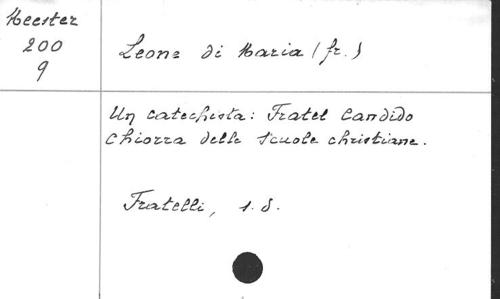 Heester
200
9
Leone di Maria (fr.)
Un catechista: Fratel Candido
Chiorra delle Scuole christiane.
Fratelli, s.d.